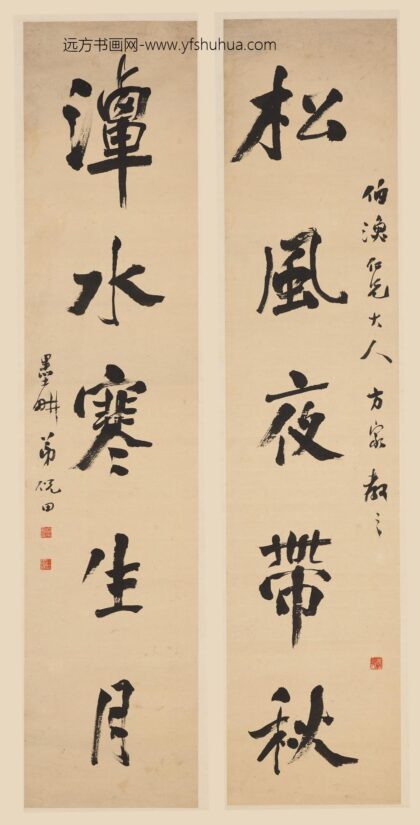 远方书画网-www.yfshuhua.com
松風夜帶秋
伯仁兄大人方家教之
潭水寒生月
墨畊弟倪田